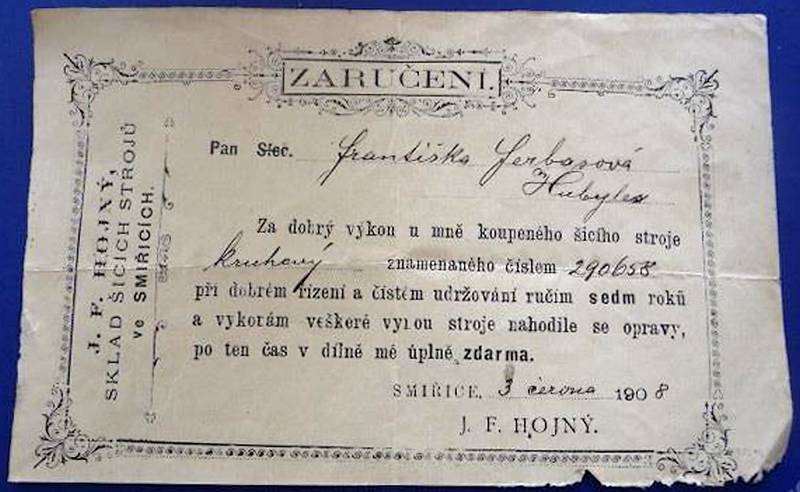 ZARUČENÍ.
J. F. HOJNÝ,
SKLAD ŠICÍCH STROJŮ
ve SMIŘICÍCH.
Pan Slec. Františka Ferbasová
Za dobrý výkon u mně koupeného šicího stroje
kruhový znamenaného číslem 290658
při dobrém řízení a čistém udržování ručím sedm roků
a vykonám veškeré vynou stroje nahodile se opravy,
po ten čas v dílně mé úplně zdarma.
SMIŘICE, 3 června 1908
J. F. HOJNÝ.